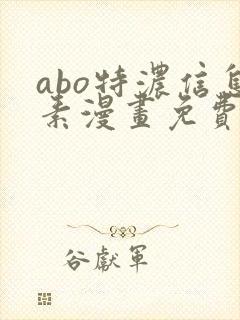 abo特濃信息
素漫畫免費
谷獻軍